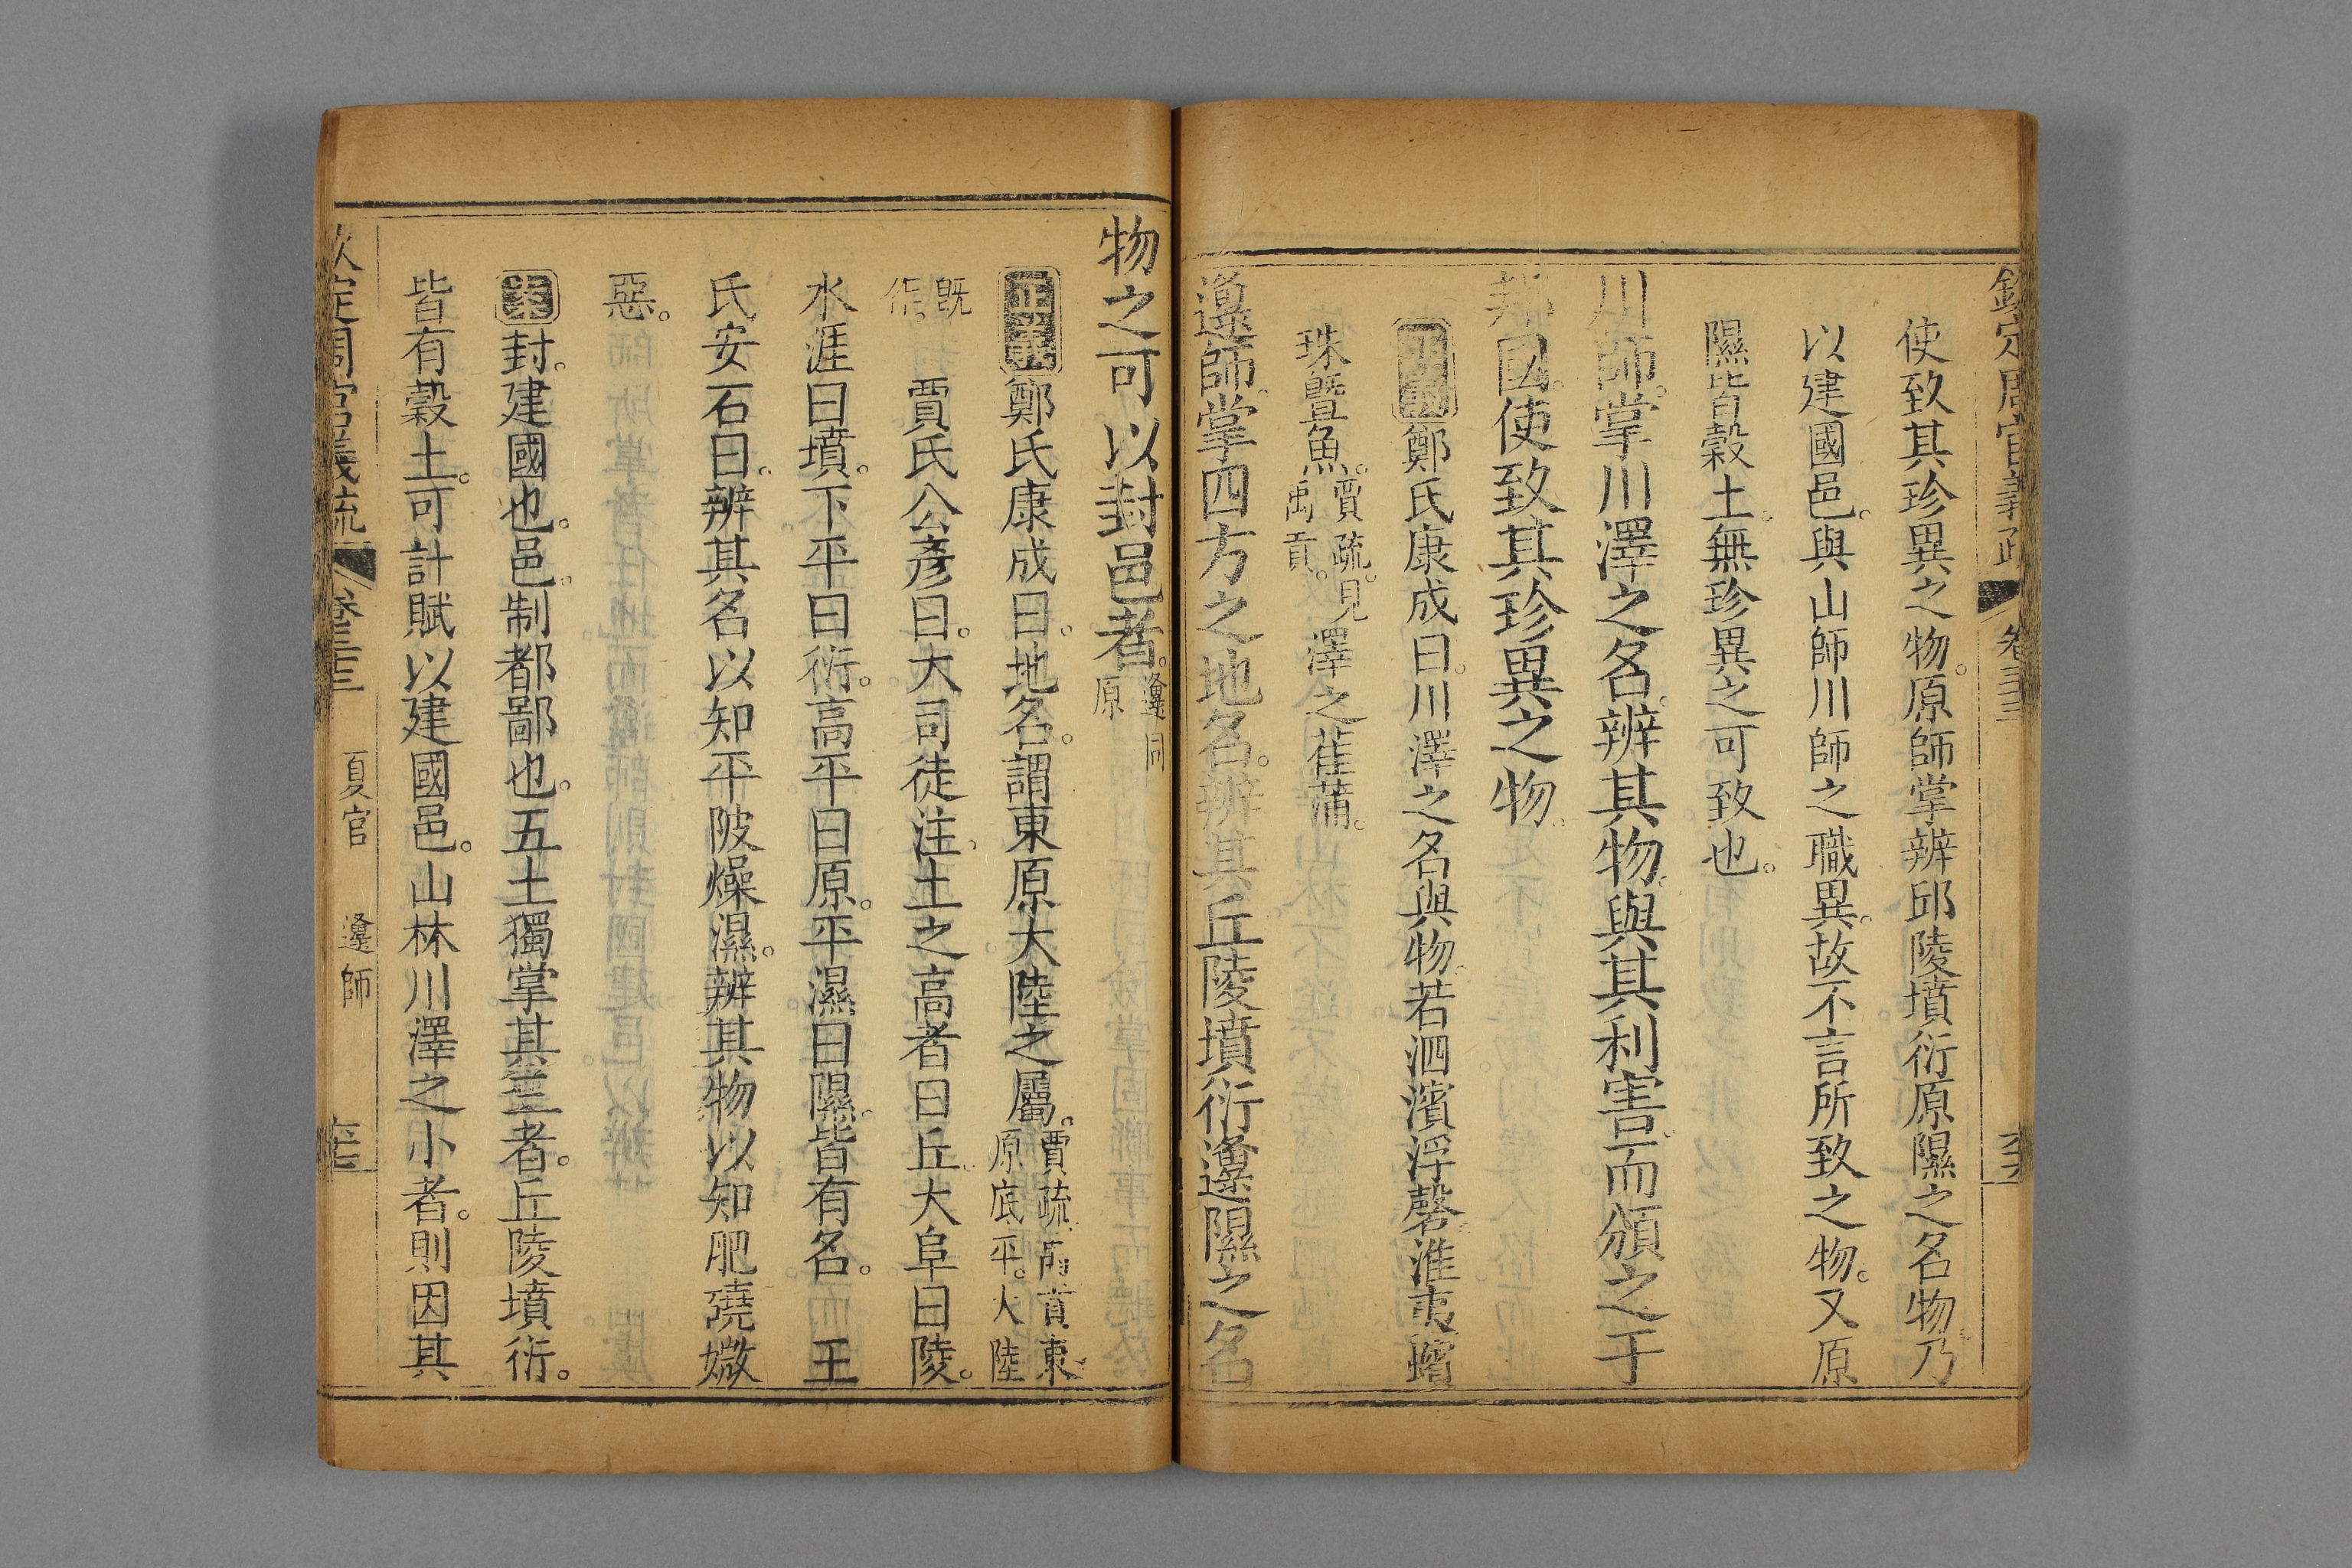 欽定周官義疏 卷三十三
使致其珍異之物。原師掌辨邱陵墳衍原隰之名物。乃
以建國邑。與山師川師之職異。故不言所致之物。又原
隰皆穀土。無珍異之可致也。
川師。掌川澤之名。辨其物。與其利害。而頒之于
邦國。使致其珍異之物。
正義鄭氏康成曰。川澤之名與物。若泗濱浮磬。淮夷蠙
珠曁魚。賈疏。見禹貢。澤之萑蒲。
邍師。掌四方之地名。辨其丘陵墳衍邍隰之名
物之可以封邑者。邍同原
正義鄭氏康成曰。地名。謂東原大陸之屬。賈疏。禹貢。東原底平。大陸
既作。 賈氏公彥曰。大司徒注。土之高者曰丘。大阜曰陵。
水涯曰墳。下平曰衍。高平曰原。平濕曰隰。皆有名。 王
氏安石曰。辨其名以知平陂燥濕。辨其物以知肥磽媺
惡。
案封。建國也。邑。制都鄙也。五土獨掌其三者。丘陵墳衍。
皆有穀土。可計賦以建國邑。山林川澤之小者。則因其
欽定周官義疏 卷三十三 夏官 邍師